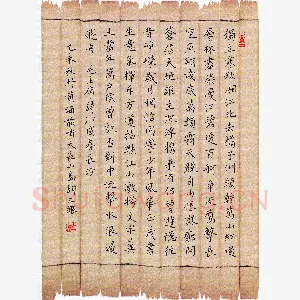 獨立寒秋湘江北去橘子洲頭看萬山紅遍
層林盡染漫江碧透百舸爭流鷹擊長
空魚翔淺底萬類霜天競自由悵寥廓問
蒼茫大地誰主沉浮攜來百侶曾遊憶往
昔崢嶸歲月稠恰同學少年風華正茂書
生意氣揮斥方遒指點江山激揚文字糞
土當年萬戶侯曾記否到中流擊水浪遏
飛舟 毛主席詩詞沁園春長沙
乙未秋於